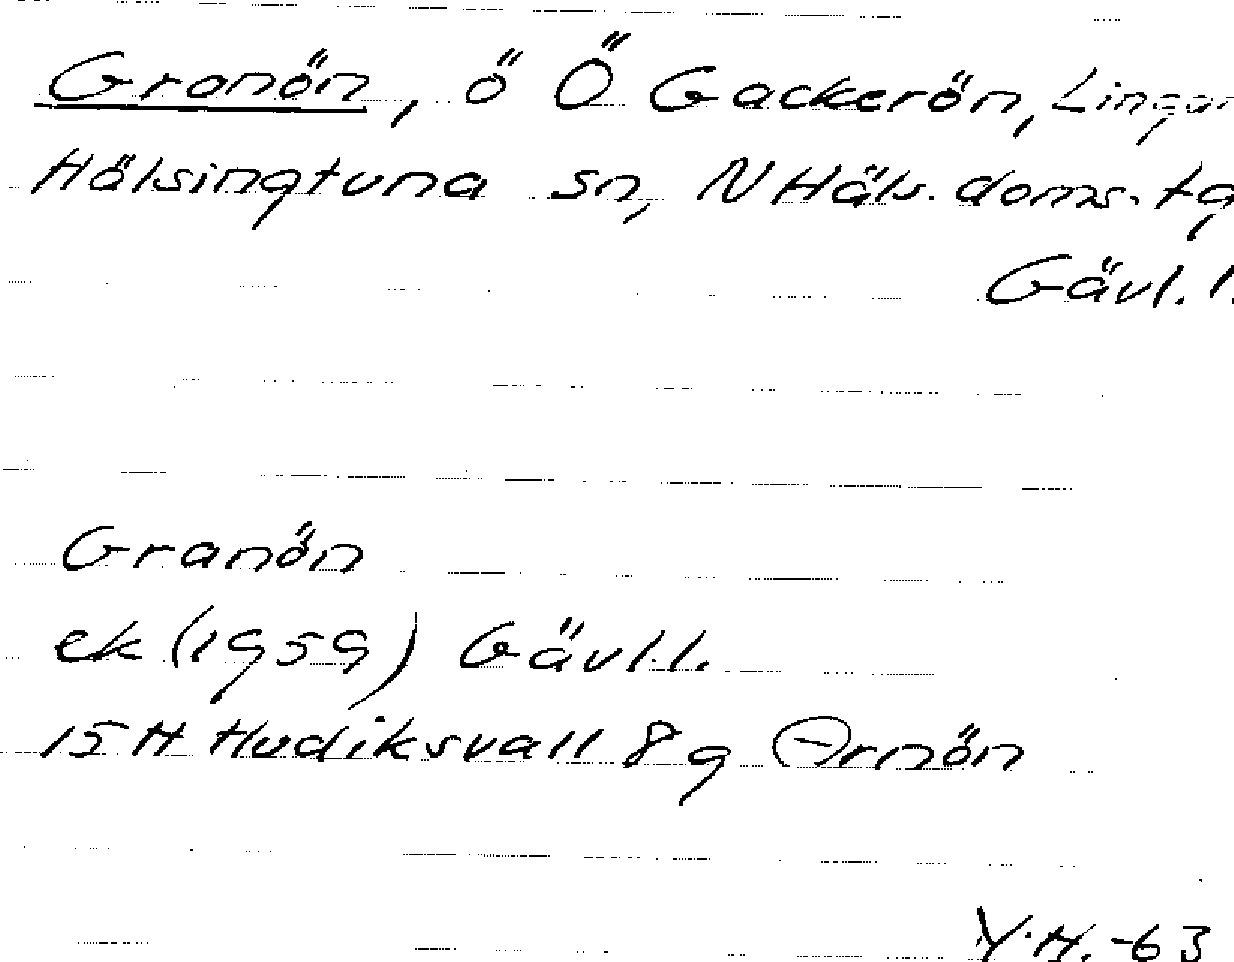 Granön, ö Ö Gackerön, Lingar
Hälsingtuna sn, N Häls. doms. tg
Gävl. l.
Granön
ek (1959) Gävl.l.
15 H Hudiksvall 8 g Arnön
Y.H. -63